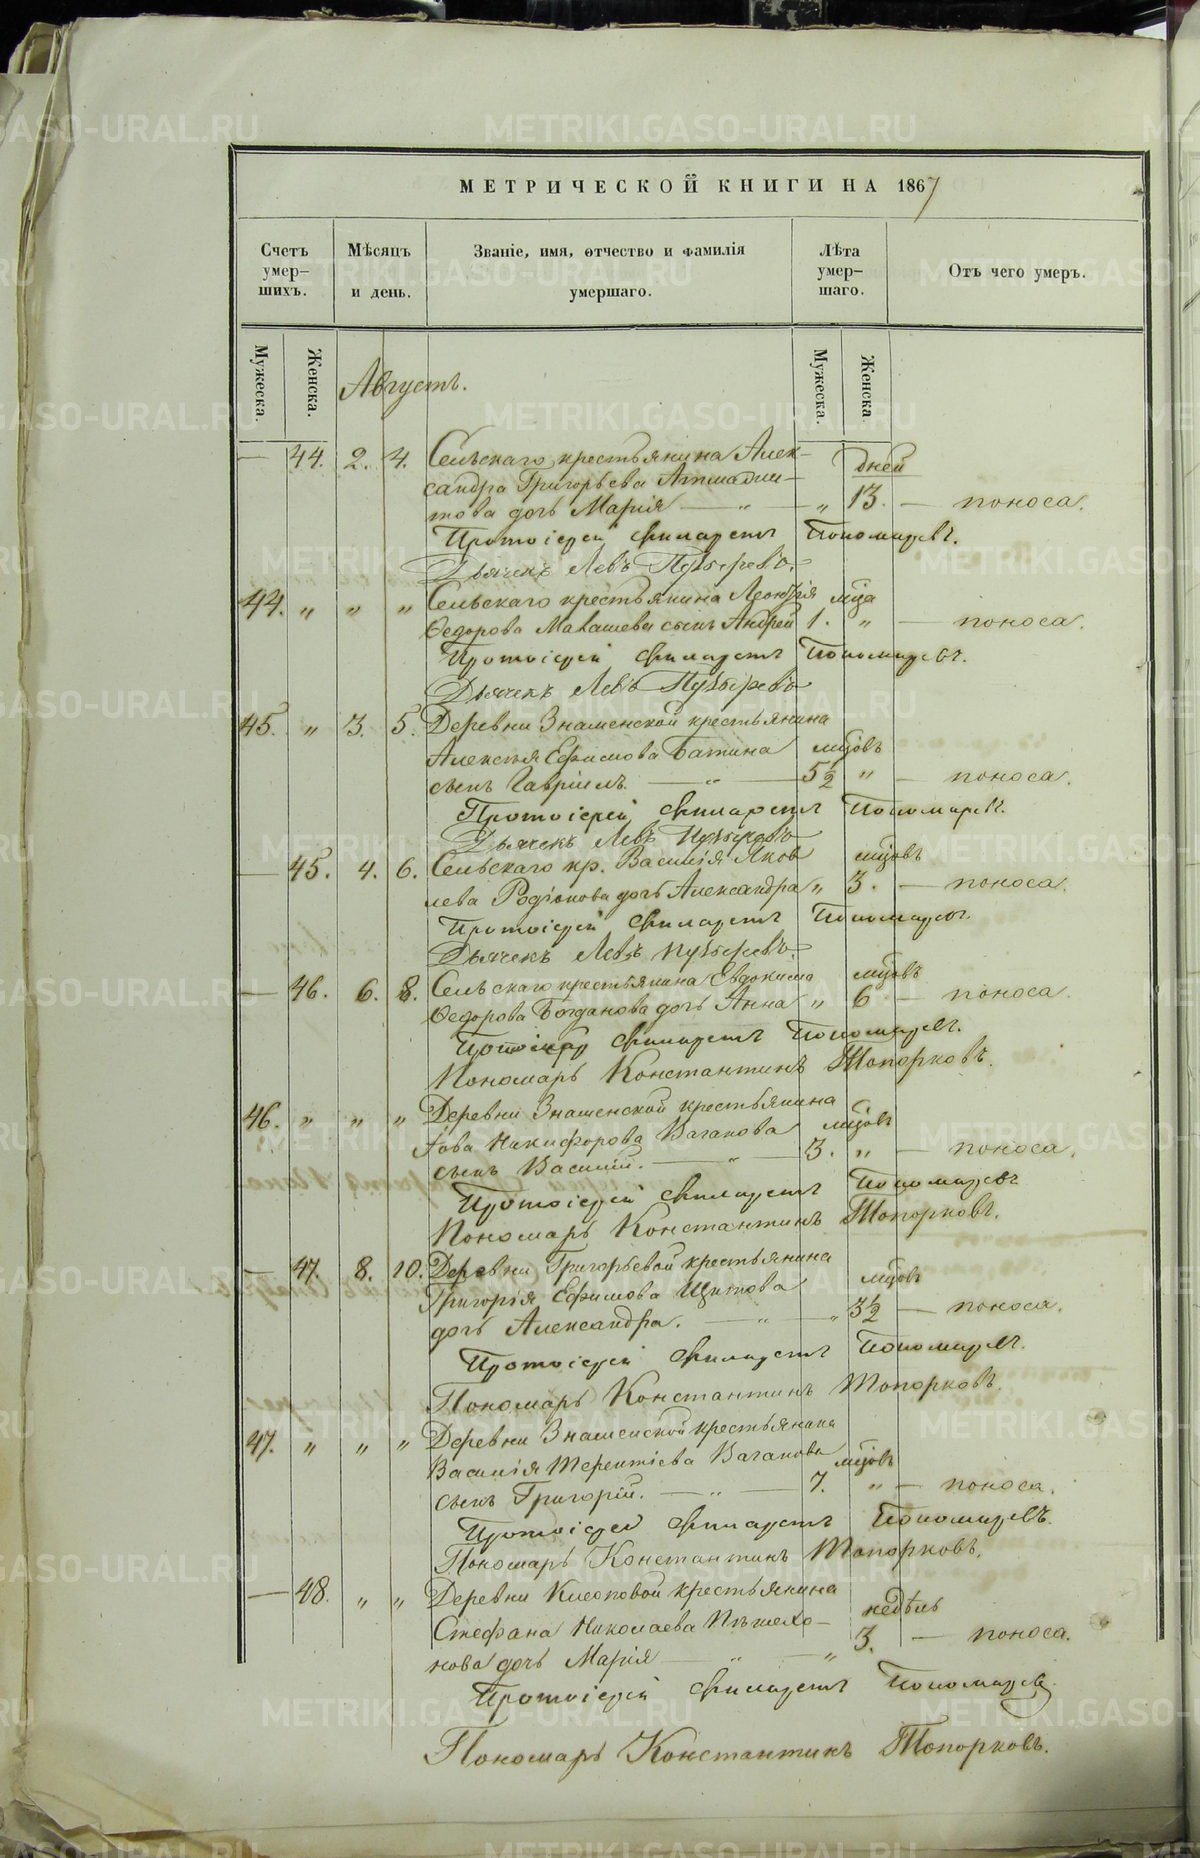 МЕТРИЧЕСКОЙ КНИГИ НА 1867
Счетъ умер-шихъ.
Мѣсяцъ и день.
Званіе, имя, отчество и фамилія умершаго.
Лѣта умер-шаго.
Отъ чего умеръ.
Мужеска.
Женска.
Мужеска.
Женска.
Августъ.
— 44. 2. 4. Сельскаго крестьянина Алек- дней
сандра Григорьева
това дочь Марія — „ — „ 13. — поноса.
Протоіерей Филаретъ Пономаревъ.
Дьячекъ Левъ Пузыревъ.
44. „ „ „ Сельскаго крестьянина Леонтія мца
Ѳедорова Малашева сынъ Андрей 1. „ — поноса.
Протоіерей Филаретъ Пономаревъ.
Дьячекъ Левъ Пузыревъ
45. „ 3. 5. Деревни Знаменской крестьянина
Алексѣя Ефимова Батина мцовъ
сынъ Гавріилъ. — „ — 5½ „ — поноса.
Протоіерей Филаретъ Пономаревъ.
Дьячекъ Левъ Пузыревъ
— 45. 4. 6. Сельскаго кр. Василія Яков мцовъ
лева Родіонова дочь Александра „ 3. — поноса.
Протоіерей Филаретъ Пономаревъ.
Дьячекъ Левъ Пузыревъ.
— 46. 6. 8. Сельскаго крестьянина Евдокима мцовъ
Ѳедорова Богданова дочь Анна „ 6 — поноса.
Филаретъ Пономаревъ.
Пономарь Константинъ Топорковъ.
46. „ „ „ Деревни Знаменской крестьянина
Іова Никифорова Ваганова мцовъ
сынъ Василій. — „ — 3. „ — поноса.
Протоіерей Филаретъ Пономаревъ
Пономарь Константинъ Топорковъ.
— 47. 8. 10. Деревни Григорьевой крестьянина
Григорія Ефимова Щитова мцовъ
дочь Александра. — „ — „ 3½ — поноса.
Протоіерей Филаретъ Пономаревъ.
Пономарь Константинъ Топорковъ.
47. „ „ „ Деревни Знаменской крестьянина
Василія Терентіева Ваганова мцовъ
сынъ Григорій. — „ — 7. „ — поноса.
Протоіерей Филаретъ Пономаревъ.
Пономарь Константинъ Топорковъ.
— 48. „ „ Деревни Клеоповой крестьянина недѣль
Стефана Николаева Пѣшехо-
нова дочь Марія — „ — „ 3. — поноса.
Протоіерей Филаретъ Пономаревъ
Пономарь Константинъ Топорковъ.
METRIKI.GASO-URAL.RU